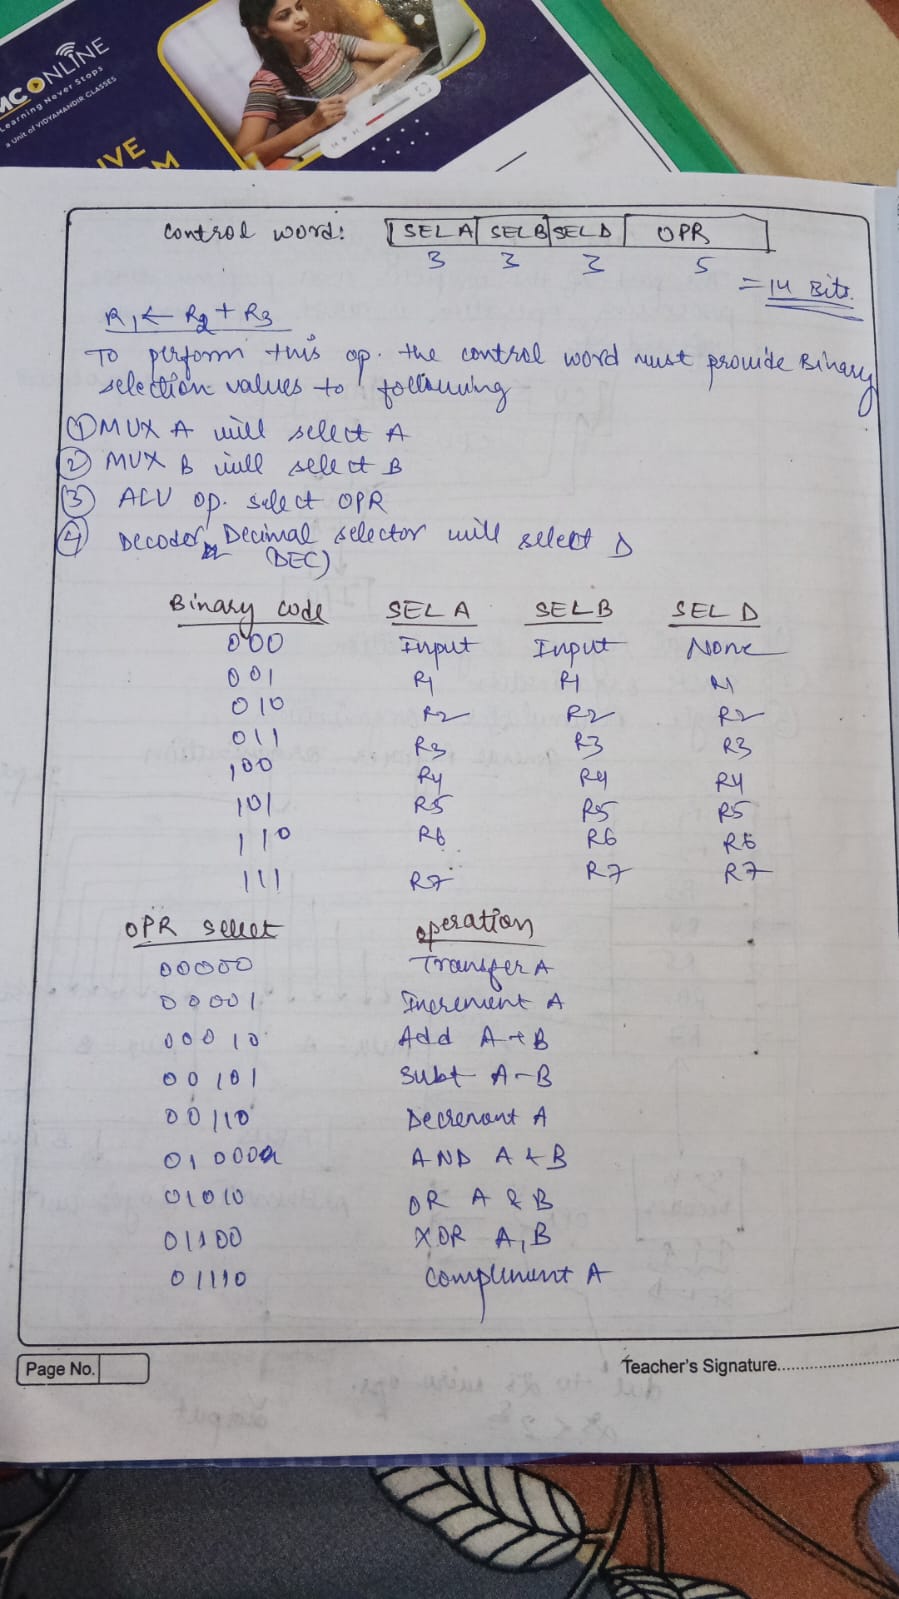 MCONLINE
Learning Never Stops
a Unit of VIDYAMANDIR CLASSES
IVE
OM
Control word: SEL A SEL B SEL D OPR
3 3 3 5
= 14 Bits.
R1 ← R2 + R3
To perform this op. the control word must provide Binary
selection values to following
① MUX A will select A
② MUX B will select B
③ ALU op. select OPR
④ Decoder Decimal selector will select D
(DEC)
Binary code SEL A SEL B SEL D
000 Input Input None
001 R1 R1 R1
010 R2 R2 R2
011 R3 R3 R3
100 R4 R4 R4
101 R5 R5 R5
110 R6 R6 R6
111 R7 R7 R7
OPR select operation
00000 Transfer A
00001 Increment A
00010 Add A+B
00101 Subt A-B
00110 Decrenant A
01000 AND A & B
01010 OR A & B
01100 XOR A, B
01110 Complinunt A
Page No.
Teacher's Signature